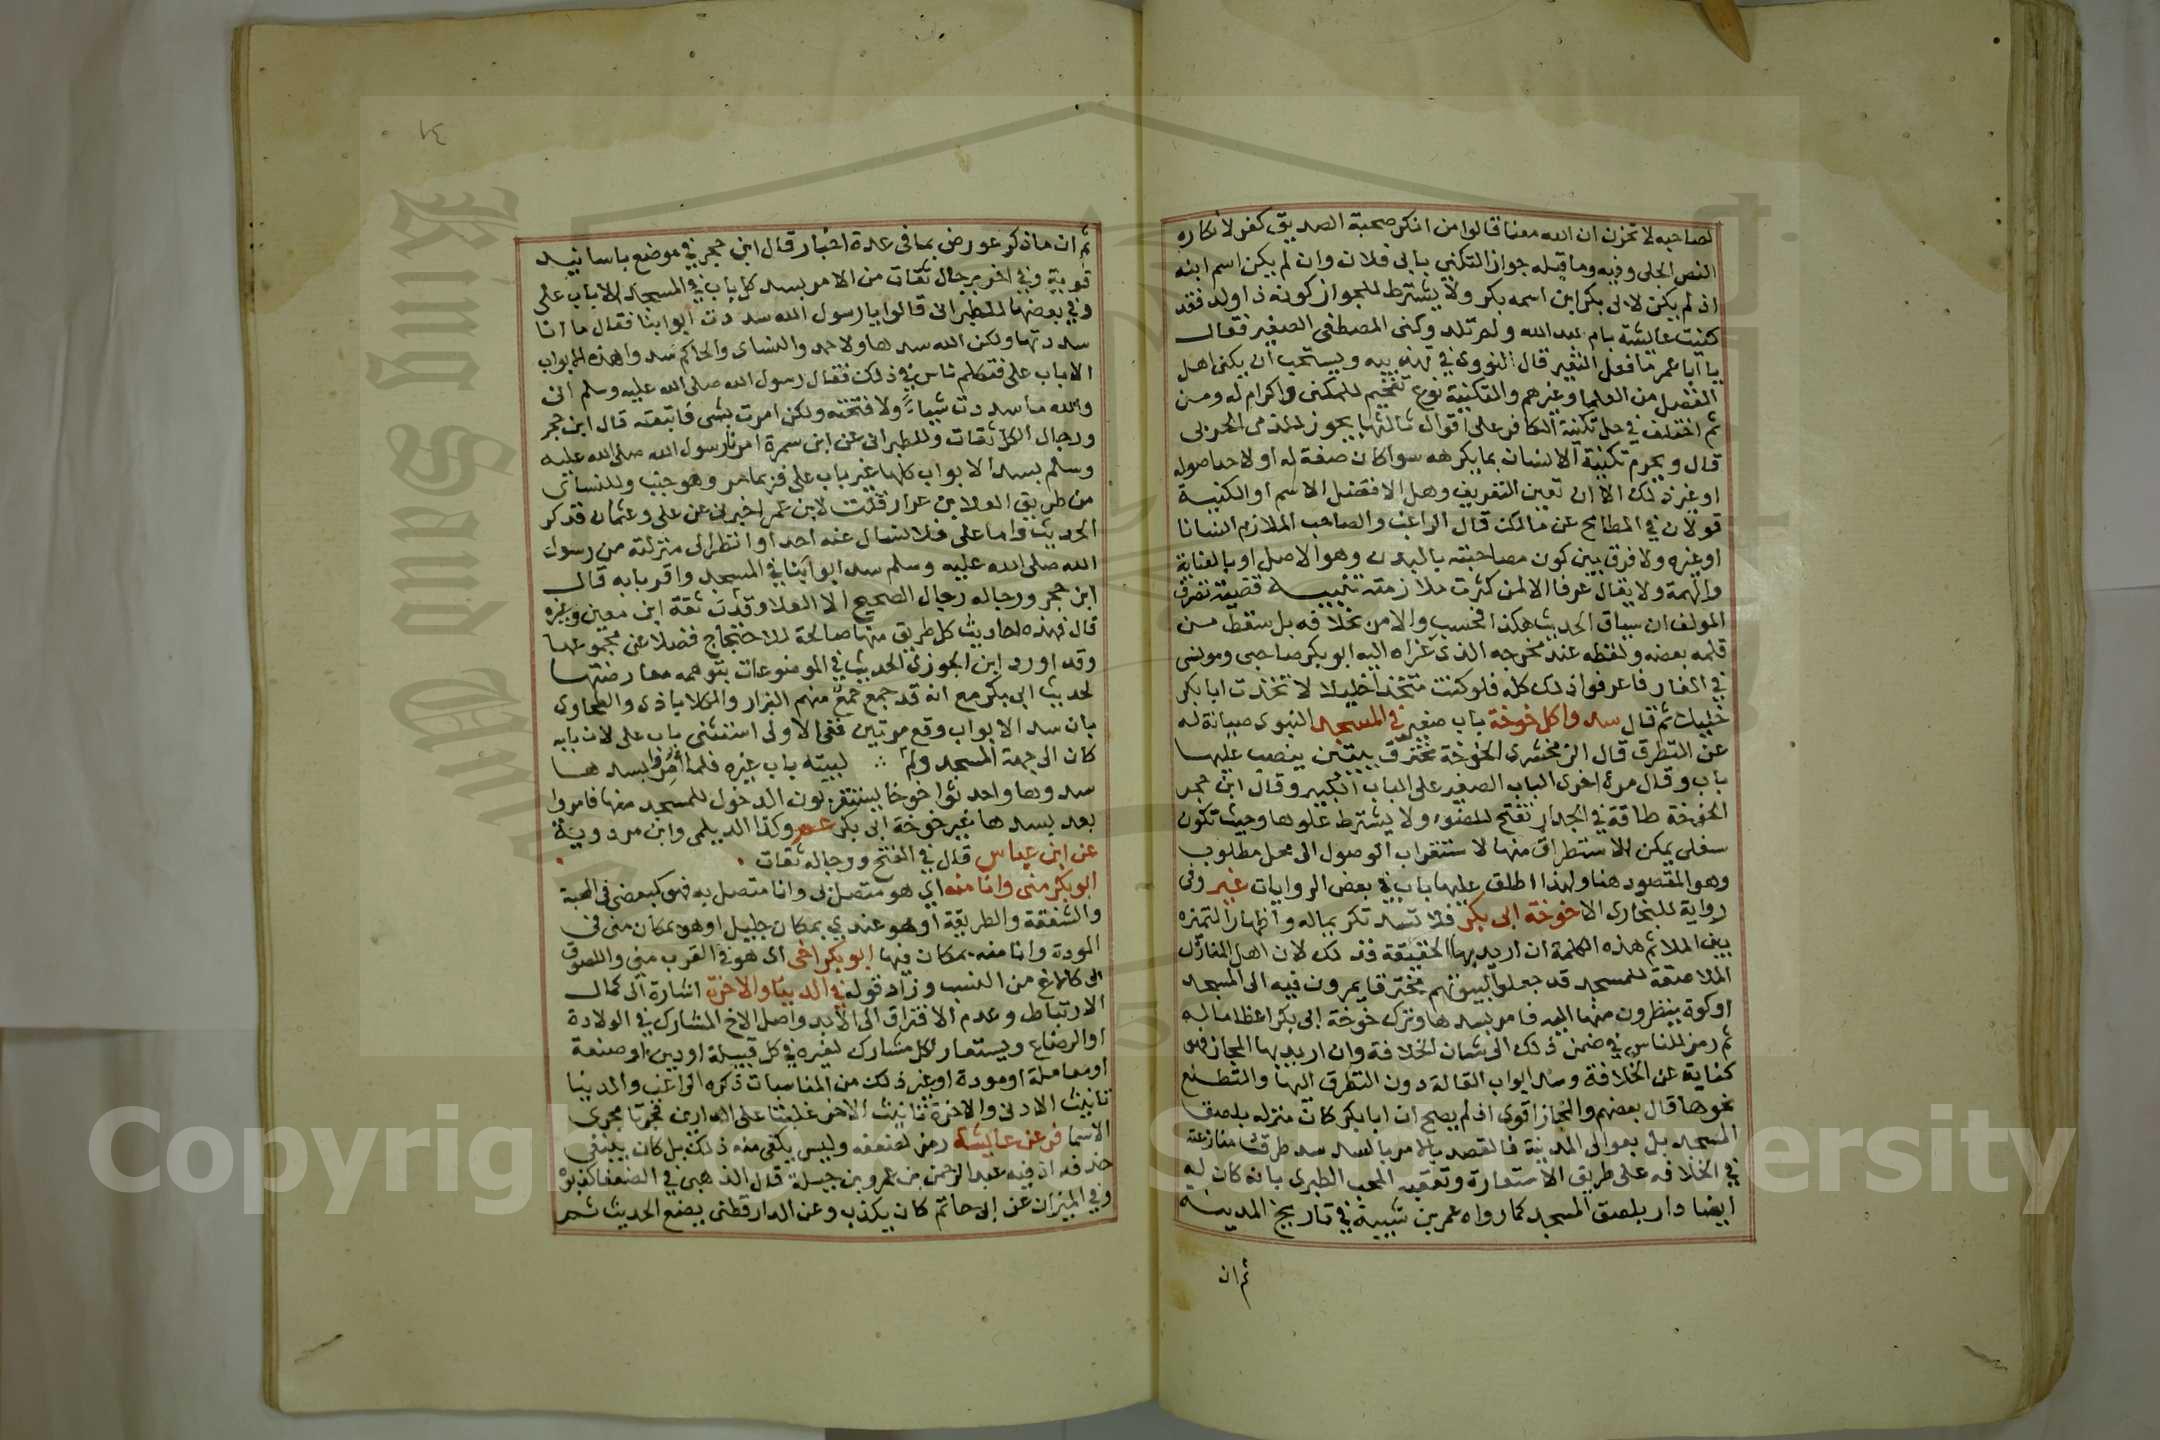 لصاحبه لا تحزن ان الله معنا قالوا من انكر صحبة الصديق كفر لانكاره
النص الجلى وفيه وما قبله جواز التكنى بابى فلان وان لم يكن اسم ابنه
اذ لم يكن لابى بكر ابن اسمه بكر ولا يشترط للجواز كونه ذا ولد فقد
كنيت عايشة بام عبد الله ولم تلد وكنى المصطفى الصغير فقال
يا ابا عمير ما فعل النغير قال النووى فى تهذيبه ويستحب ان يكنى اهل
الفضل من العلما وغيرهم والتكنية نوع تفخيم للمكنى واكرام له ومن
ثم اختلف فى حل تكنية الكافر على اقوال ثالثها يجوز للذمى الحربى
قال ويحرم تكنية الانسان بما يكرهه سوا كان صفة له او لاحد اصوله
او غير ذلك الا ان تعين التعريف وهل الافضل الاسم او الكنية
قولان فى المطامح عن مالك قال الراغب والصاحب الملازم انسانا
او غيره ولا فرق بين كون مصاحبته بالبدن وهو الاصل او بالعناية
والهمة ولا يقال عرفا الا لمن كثرت ملازمته تنبيه قضية تصرف
المولف ان سياق الحديث هكذا فحسب والامر بخلافه بل سقط من
قلمه بعضه ولفظه عند مخرجه الذى عزاه اليه ابو بكر صاحبى ومونسى
فى الغار فاعرفوا ذلك كله فلو كنت متخذا خليلا لاتخذت ابا بكر
خليلا ثم قال سدوا كل خوخة باب صغير فى المسجد النبوى صيانة له
عن التطرق قال الزمخشرى الخوخة مخترق بيتين ينصب عليها
باب وقال مرة اخرى الباب الصغير على الباب الكبير وقال ابن حجر
الخوخة طاقة فى الجدار تفتح للضوء ولا يشترط علوها وحيث تكون
سفلى يمكن الاستطراق منها لاستقراب الوصول الى محل مطلوب
وهو المقصود هنا ولهذا اطلق عليها باب فى بعض الروايات غير وفى
رواية للبخارى الا خوخة ابى بكر فلا تسد تكريما له واظهارا لتميزه
بين الملا ثم هذه الكلمة ان اريد بها الحقيقة فذلك لان اهل المنازل
الملاصقة للمسجد قد جعلوا لبيوتهم مخترقا يمرون فيه الى المسجد
او كوة ينظرون منها اليه فامر بسدها وترك خوخة ابى بكر اعظاما له
ثم رمز للناس فى ضمن ذلك الى شان الخلافة وان اريد بها المجاز فهو
كناية عن الخلافة وسد ابواب القالة دون التطرق اليها والتطلع
نحوها قال بعضهم والمجاز اقوى اذ لم يصح ان ابا بكر كان منزله بلصق
المسجد بل بعوالى المدينة فالقصد بالامر بالسد سد طرق منازعته
فى الخلافه على طريق الاستعارة وتعقبه المحب الطبرى بانه كان له
ايضا دار بلصق المسجد كما رواه عمر بن شيبة فى تاريخ المدينة
ثم ان
ثم ان ما ذكر عورض بما فى عدة اخبار قال ابن حجر فى موضع باسانيد
قوية وفى اخر برجال ثقات من الامر بسد كل باب فى المسجد الا باب على
وفى بعضها للطبرانى قالوا يا رسول الله سددت ابوابنا فقال ما انا
سددتها ولكن الله سدها ولاحمد والنساى والحاكم سدوا هذه الابواب
الا باب على فتكلم ناس فى ذلك فقال رسول الله صلى الله عليه وسلم انى
والله ما سددت شيئا ولا فتحته ولكن امرت بشى فاتبعته قال ابن حجر
ورجال الكل ثقات وللطبرانى عن ابن سمرة امرنا رسول الله صلى الله عليه
وسلم بسد الابواب كلها غير باب على فربما مر وهو جنب وللنسائى
من طريق العلا بن عرار قلت لابن عمر اخبرنى عن على وعثمان فذكر
الحديث واما على فلا تسال عنه احدا وانظر الى منزلته من رسول
الله صلى الله عليه وسلم سد ابوابنا فى المسجد واقر بابه قال
ابن حجر ورجاله رجال الصحيح الا العلا وقد ثقة ابن معين وغيره
قال فهذه احاديث كل طريق منها صالحة للاحتجاج فضلا عن مجموعها
وقد اورد ابن الجوزى الحديث فى الموضوعات بتوهمه معارضتها
لحديث ابى بكر مع انه قد جمع جمع منهم البزار والكلاباذى والطحاوى
بان سد الابواب وقع مرتين ففى الاولى استثنى باب على لان بابه
كان الى جهة المسجد ولم ∴ لبيته باب غيره فلما امروا بسدها
سدوها واحدثوا خوخا يستقربون الدخول للمسجد منها فامروا
بعد بسدها غير خوخة ابى بكر عم وكذا الديلمى وابن مردوية
عن ابن عباس قال فى الفتح ورجاله ثقات
ابو بكر منى وانا منه اى هو متصل بى وانا متصل به فهو كبعضى فى المحبة
والشفقة والطريقة او هو عندى بمكان جليل او هو بمكان منى فى
المودة وانا منه بمكان فيها ابو بكر اخى اى هو فى القرب منى واللصوق
الى كالاخ من النسب وزاد قوله فى الدنيا والاخرة اشارة الى كمال
الارتباط وعدم الافتراق الى الابد واصل الاخ المشارك فى الولادة
او الرضاع ويستعار لكل مشارك لغيره فى كل قبيلة او دين او صنعة
او معاملة او مودة او غير ذلك من المناسبات ذكره الراغب والدنيا
تانيث الادنى والاخرة تانيث الاخر غلبتا على الدارين فجرتا مجرى
الاسما فر عن عايشة رمز لضعفه وليس يكفى منه ذلك بل كان ينبغى
حذفه اذ فيه عبد الرحمن بن عمرو بن جبلة قال الذهبى فى الضعفا كذبوه
وفى الميزان عن ابى حاتم كان يكذب وعن الدارقطنى يضع الحديث ثم
King Saud University
Copyright © King Saud University